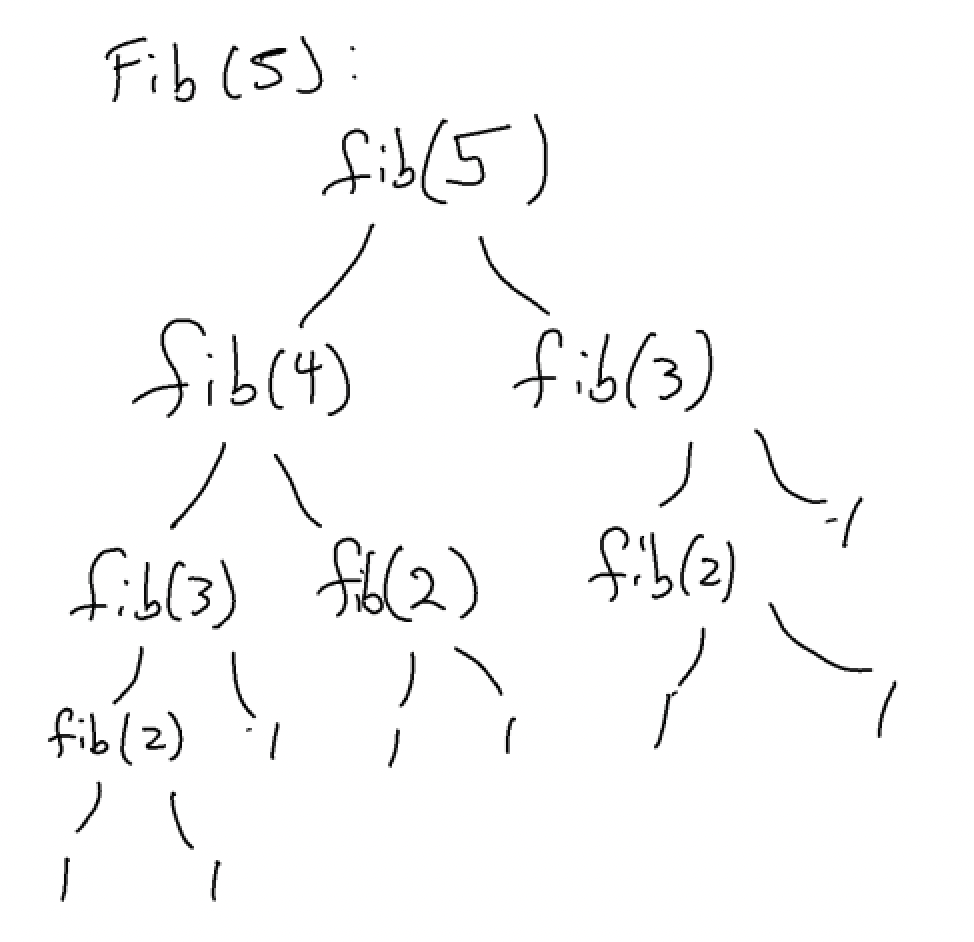 Fib(5):
fib(5)
fib(4) fib(3)
-1
fib(3) fib(2) fib(2)
fib(2) -1 1 1 1 1
1 1